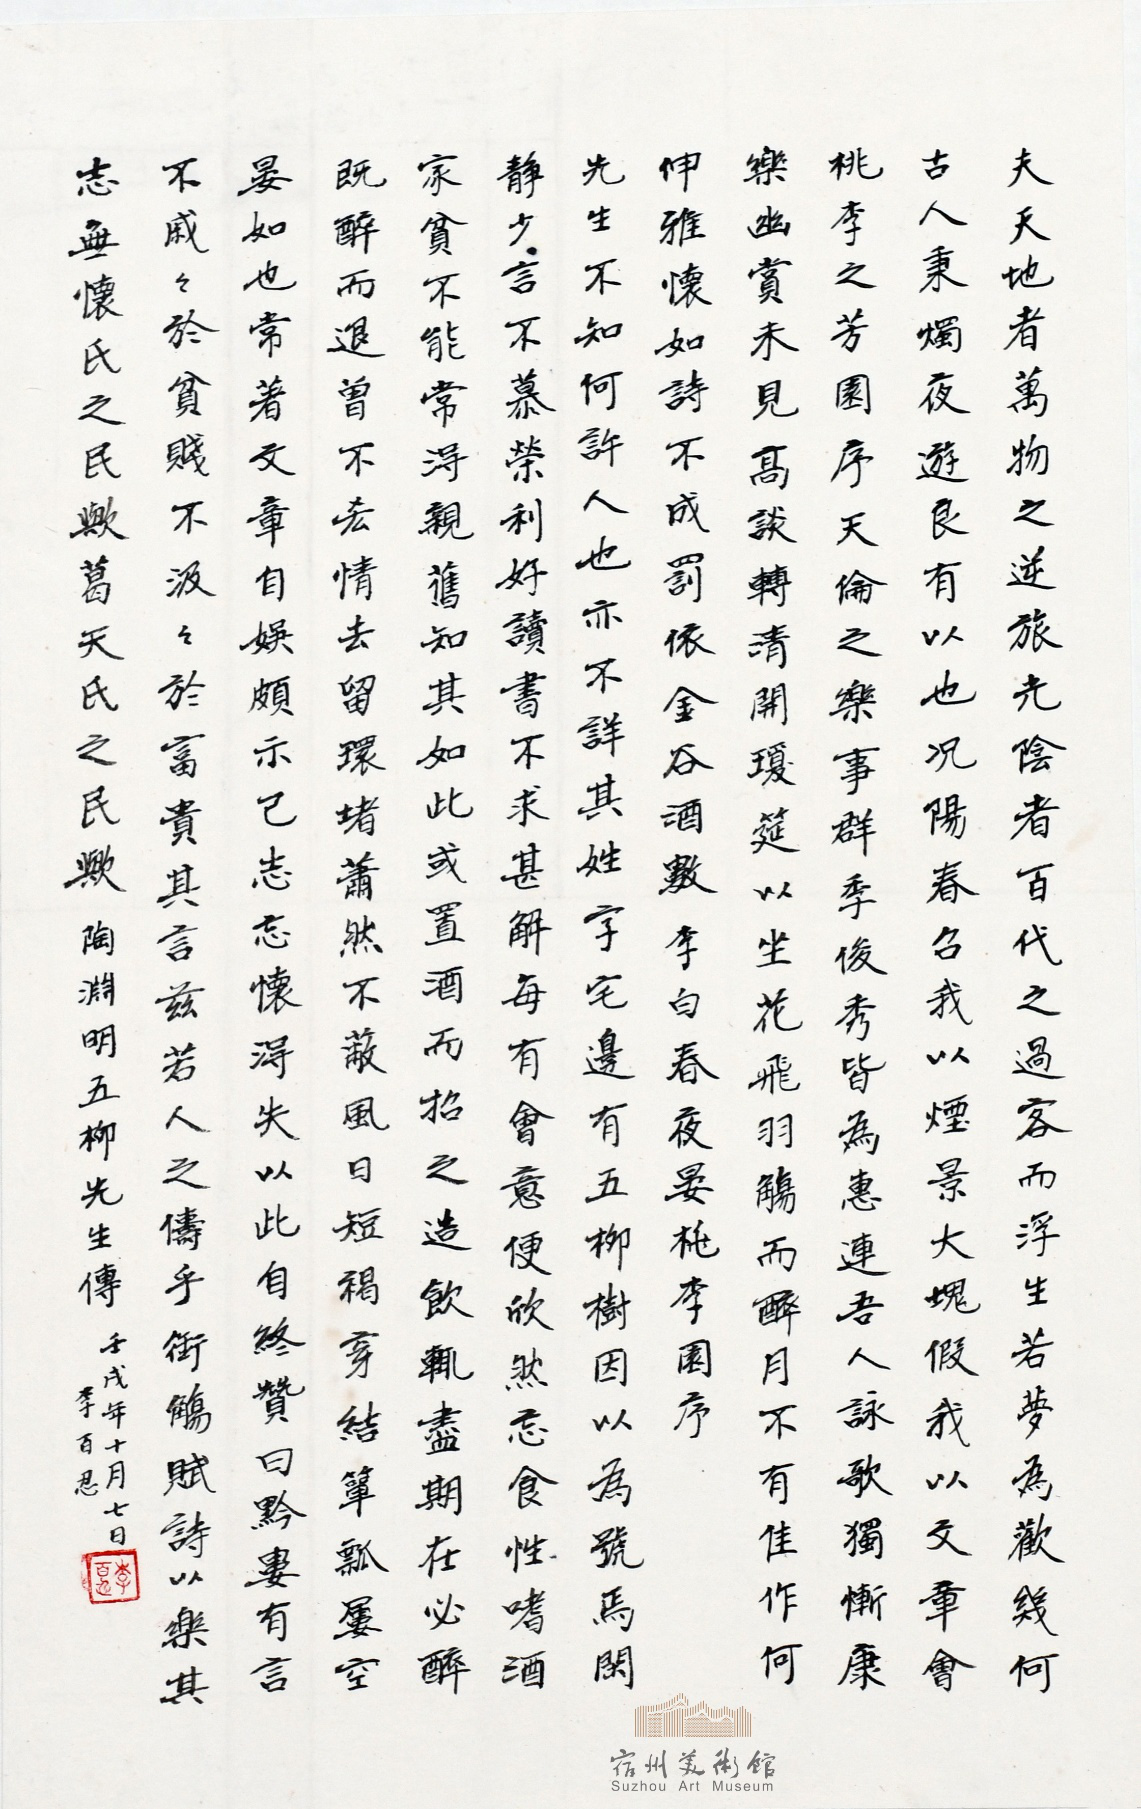 夫天地者萬物之逆旅光陰者百代之過客而浮生若夢為歡幾何
古人秉燭夜遊良有以也况陽春召我以煙景大塊假我以文章會
桃李之芳園序天倫之樂事群季俊秀皆為惠連吾人詠歌獨慚康
樂幽賞未見高談轉清開瓊筵以坐花飛羽觴而醉月不有佳作何
伸雅懷如詩不成罰依金谷酒數李白春夜晏桃李園序
先生不知何許人也亦不詳其姓字宅邊有五柳樹因以為號焉閑
靜少言不慕榮利好讀書不求甚解每有會意便欣然忘食性嗜酒
家貧不能常得親舊知其如此或置酒而招之造飲輒盡期在必醉
既醉而退曾不吝情去留環堵蕭然不蔽風日短褐穿結簞瓢屢空
晏如也常著文章自娛頗示己志忘懷得失以此自終贊曰黔婁有言
不戚々於貧賤不汲々於富貴其言茲若人之儔乎銜觴賦詩以樂其
志無懷氏之民歟葛天氏之民歟 陶淵明五柳先生傳
壬戌年十月七日
李百忍
李百忍
宿州美術館
Suzhou Art Museum